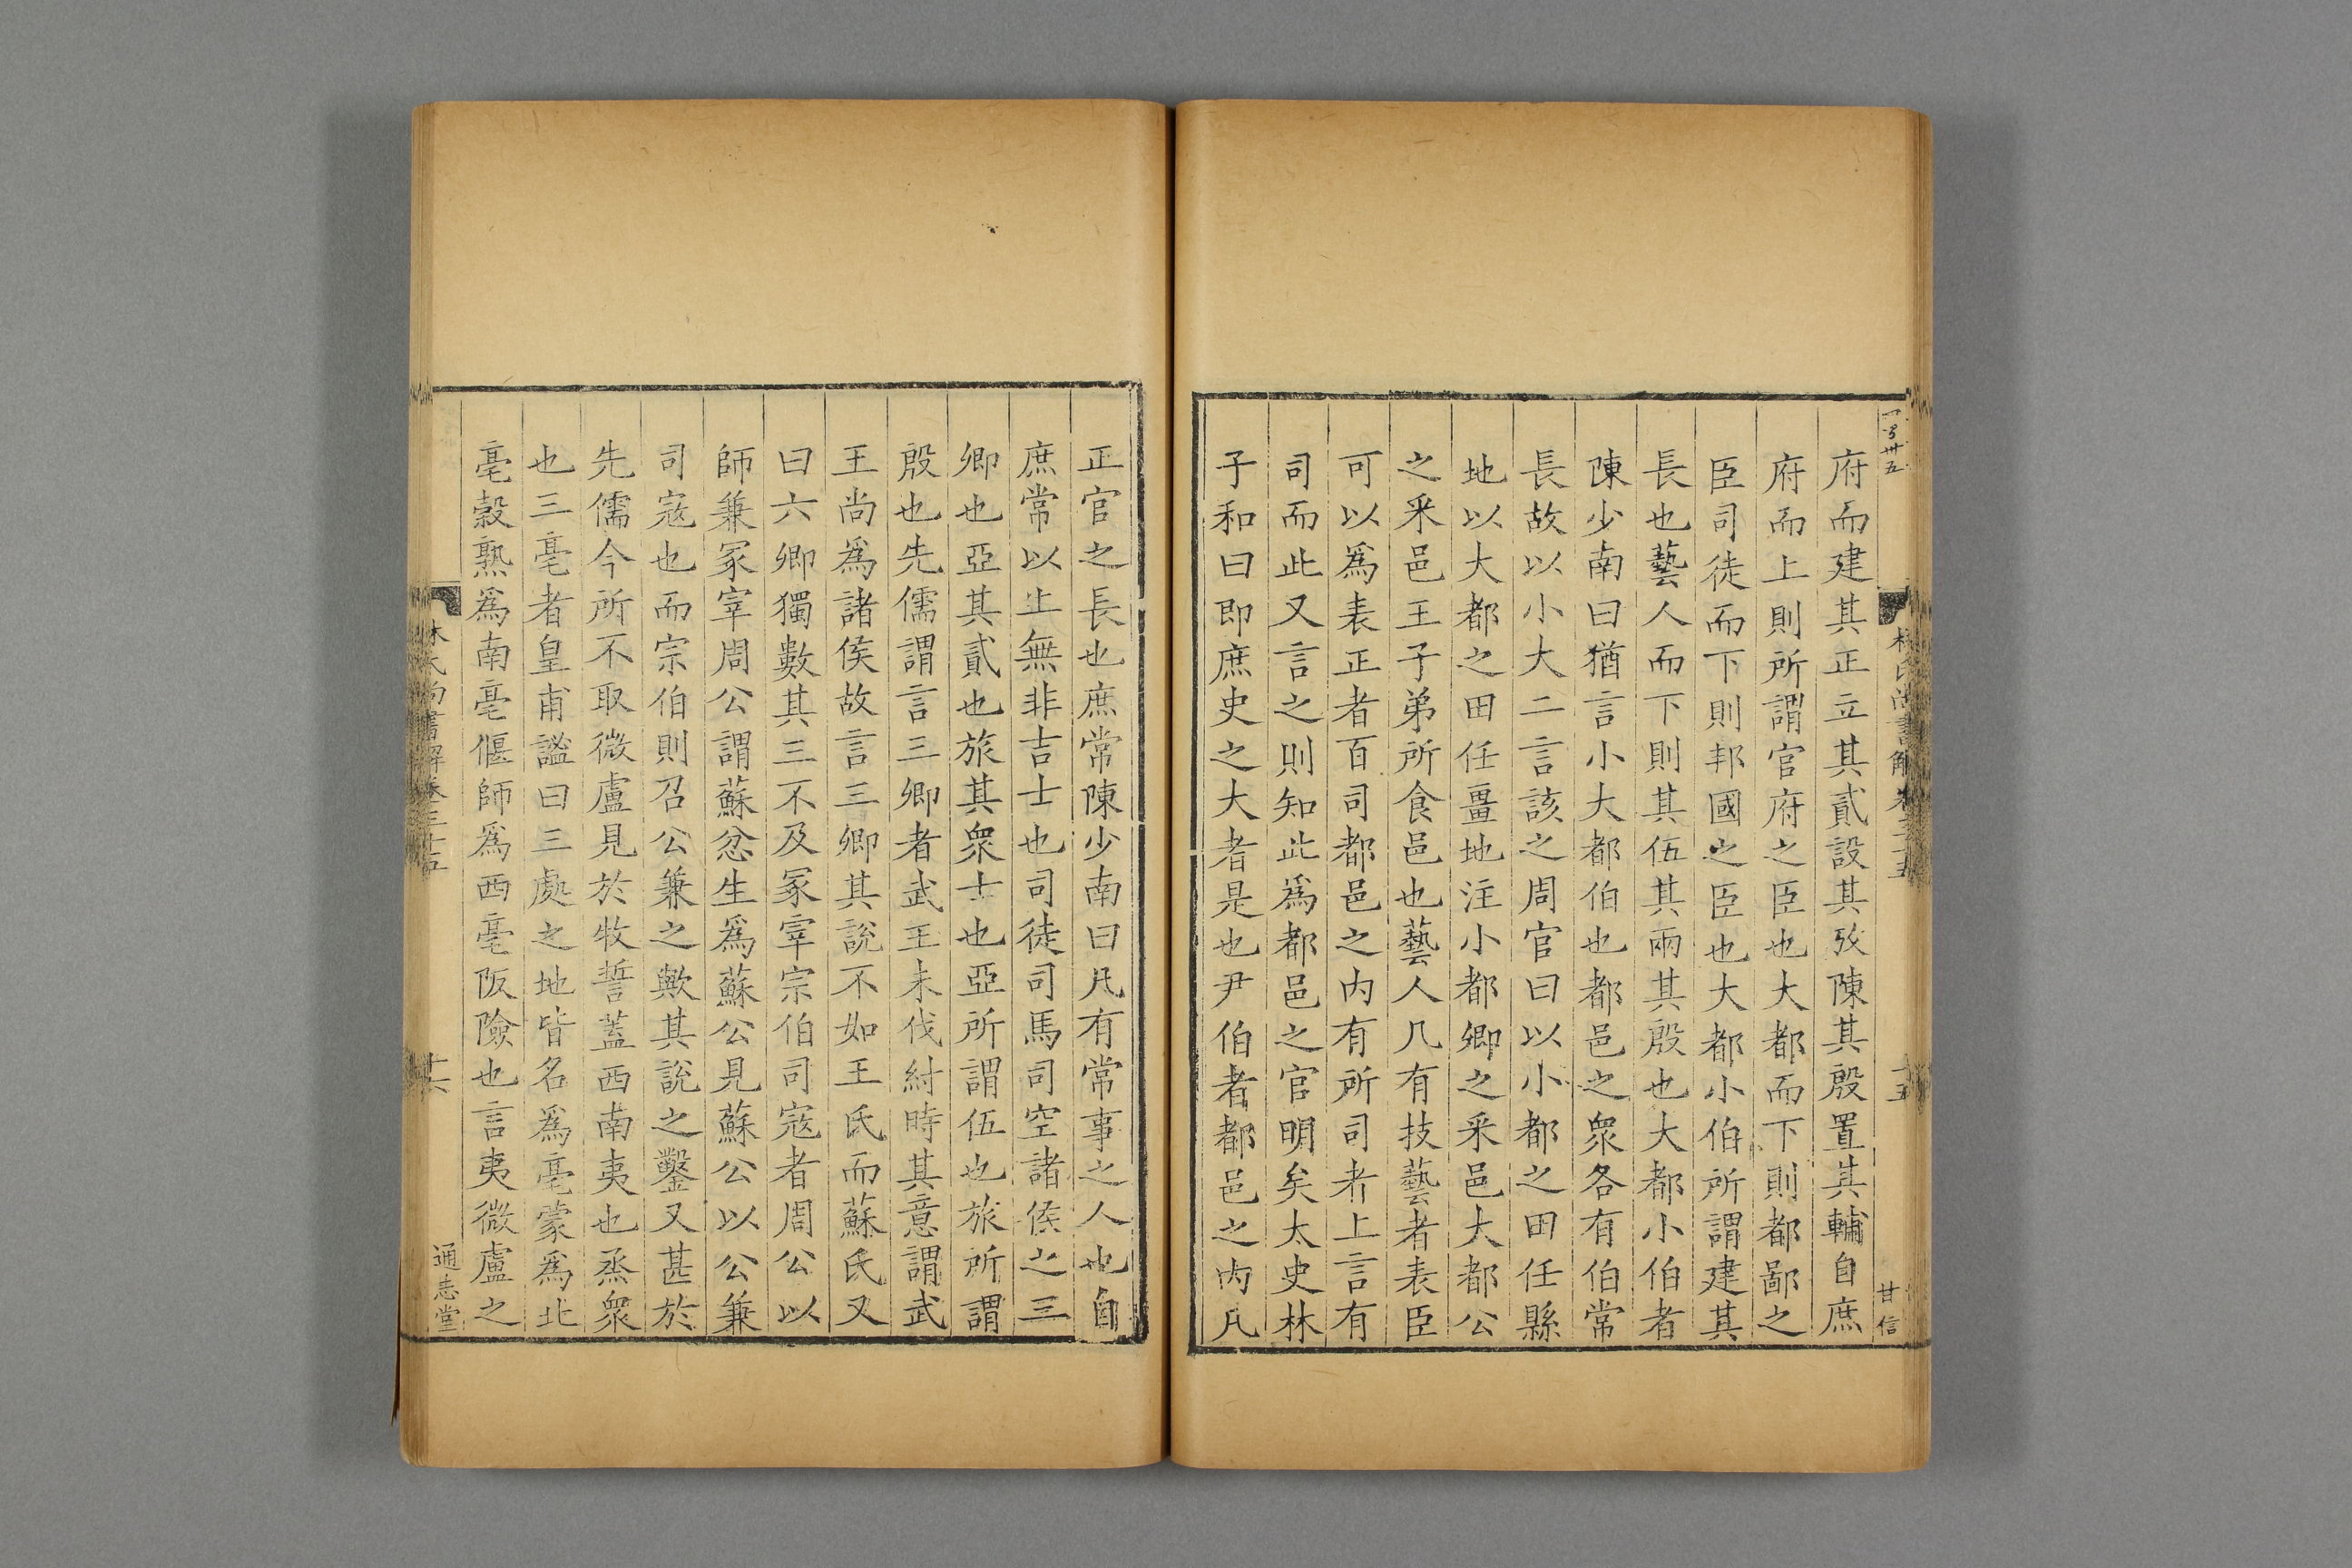 府而建其正立其貳設其攷陳其殷置其輔自庶
府而上則所謂官府之臣也大都而下則都鄙之
臣司徒而下則邦國之臣也大都小伯所謂建其
長也藝人而下則其伍其兩其殷也大都小伯者
陳少南曰猶言小大都伯也都邑之衆各有伯常
長故以小大二言該之周官曰以小都之田任縣
地以大都之田任畺地注小都卿之釆邑大都公
之釆邑王子弟所食邑也藝人凡有技藝者表臣
可以爲表正者百司都邑之内有所司者上言有
司而此又言之則知此爲都邑之官明矣太史林
子和曰即庶史之大者是也尹伯者都邑之内凡
甘信
正官之長也庶常陳少南曰凡有常事之人也自
庶常以上無非吉士也司徒司馬司空諸侯之三
卿也亞其貳也旅其衆士也亞所謂伍也旅所謂
殷也先儒謂言三卿者武王未伐紂時其意謂武
王尚爲諸侯故言三卿其說不如王氏而蘇氏又
曰六卿獨數其三不及冢宰宗伯司寇者周公以
師兼冢宰周公謂蘇忿生爲蘇公見蘇公以公兼
司寇也而宗伯則召公兼之歟其說之鑿又甚於
先儒今所不取微盧見於牧誓蓋西南夷也烝衆
也三亳者皇甫謐曰三處之地皆名爲亳蒙爲北
亳穀熟爲南亳偃師爲西亳阪險也言夷微盧之
林氏尚書解卷三十五
十六
通志堂